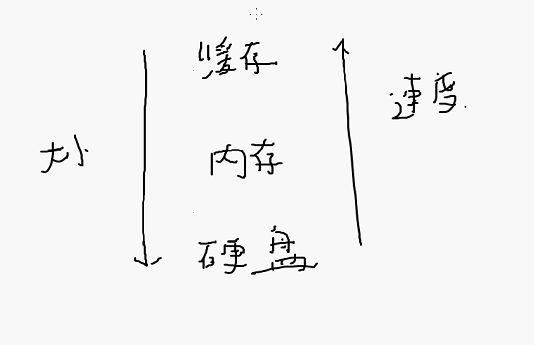 缓存
速度
大小
内存
硬盘